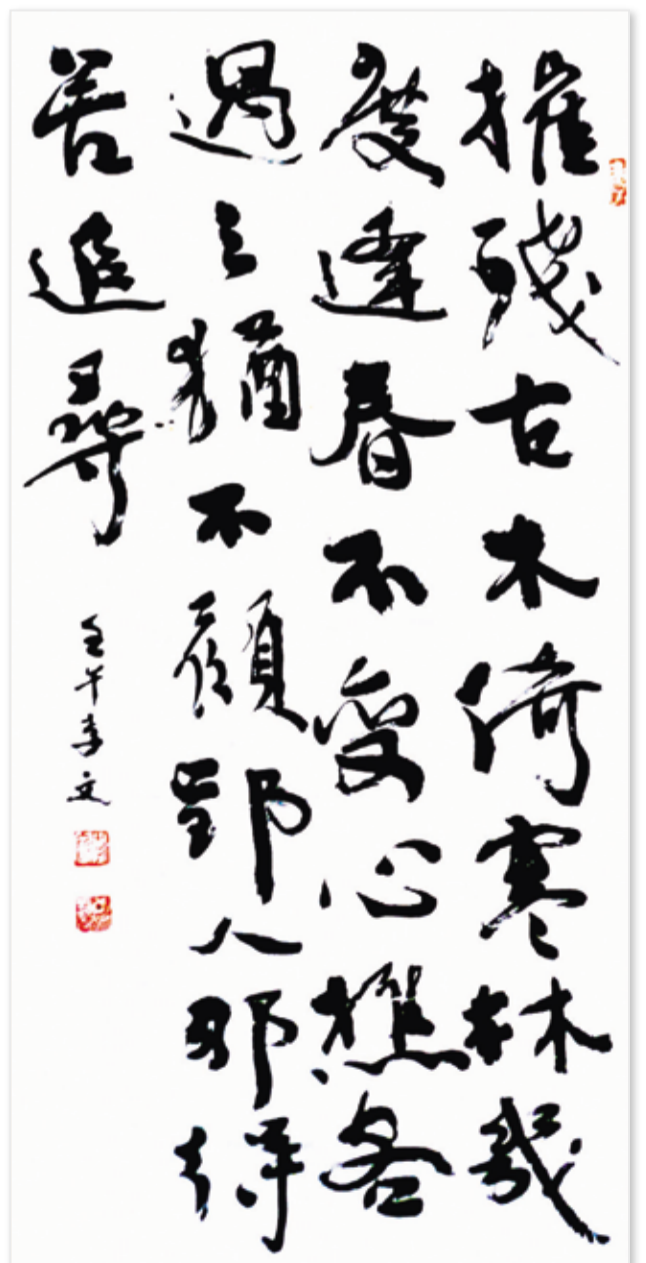 摧残古木倚寒林幾
度逢春不变心樵客
遇之猶不顧郢人那得
苦追尋
壬午李文